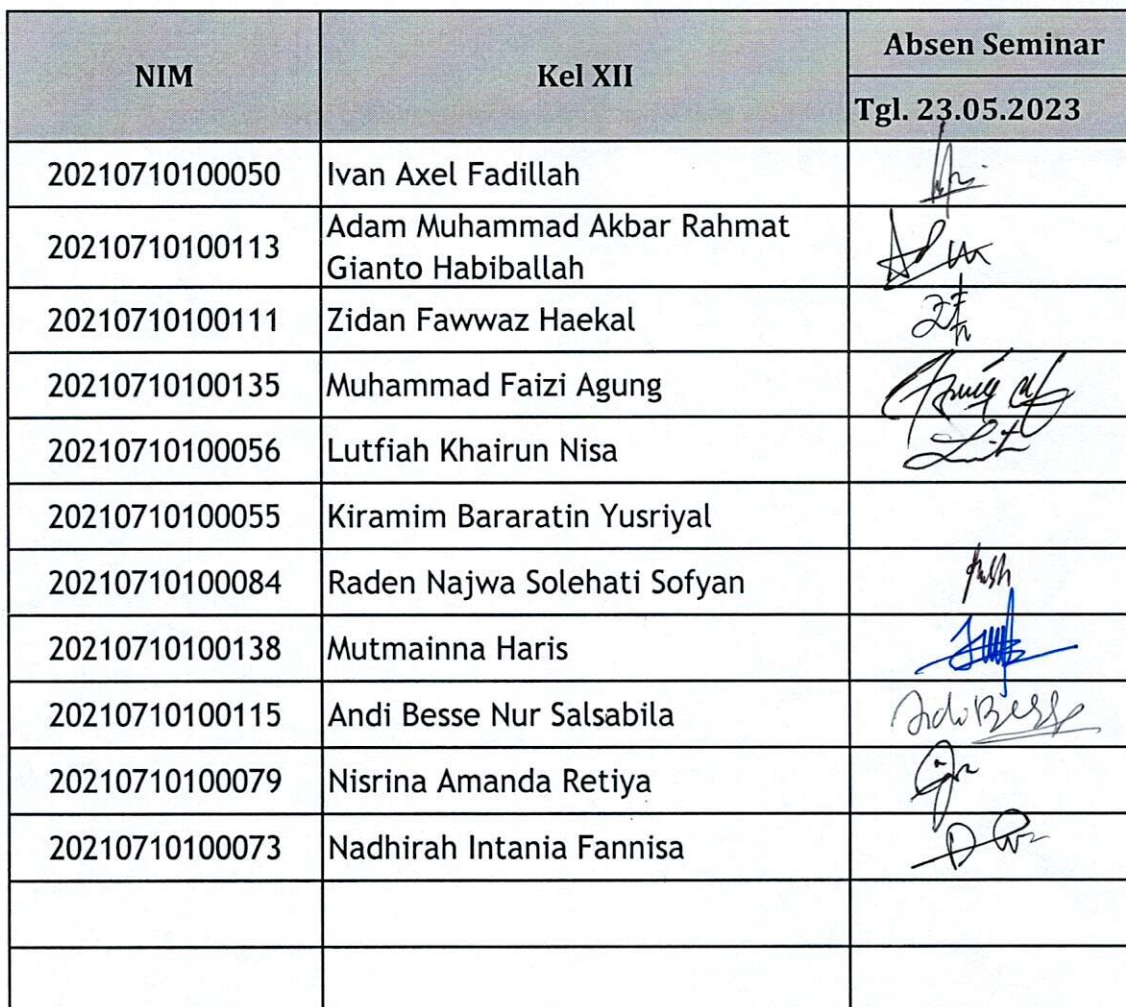 NIM Kel XII Absen Seminar
Tgl. 23.05.2023
20210710100050 Ivan Axel Fadillah
20210710100113 Adam Muhammad Akbar Rahmat
Gianto Habiballah
20210710100111 Zidan Fawwaz Haekal
20210710100135 Muhammad Faizi Agung
20210710100056 Lutfiah Khairun Nisa
20210710100055 Kiramim Bararatin Yusriyal
20210710100084 Raden Najwa Solehati Sofyan
20210710100138 Mutmainna Haris
20210710100115 Andi Besse Nur Salsabila
20210710100079 Nisrina Amanda Retiya
20210710100073 Nadhirah Intania Fannisa